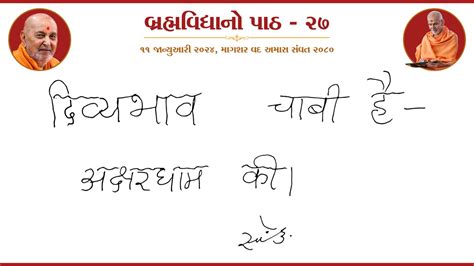 બ્રહ્મવિદ્યાનો પાઠ - ૨૭
૧૧ જાન્યુઆરી ૨૦૨૪, માગશર વદ અમાસ સંવત ૨૦૮૦
दिव्यभाव चाबी है-
अक्षरधाम की।